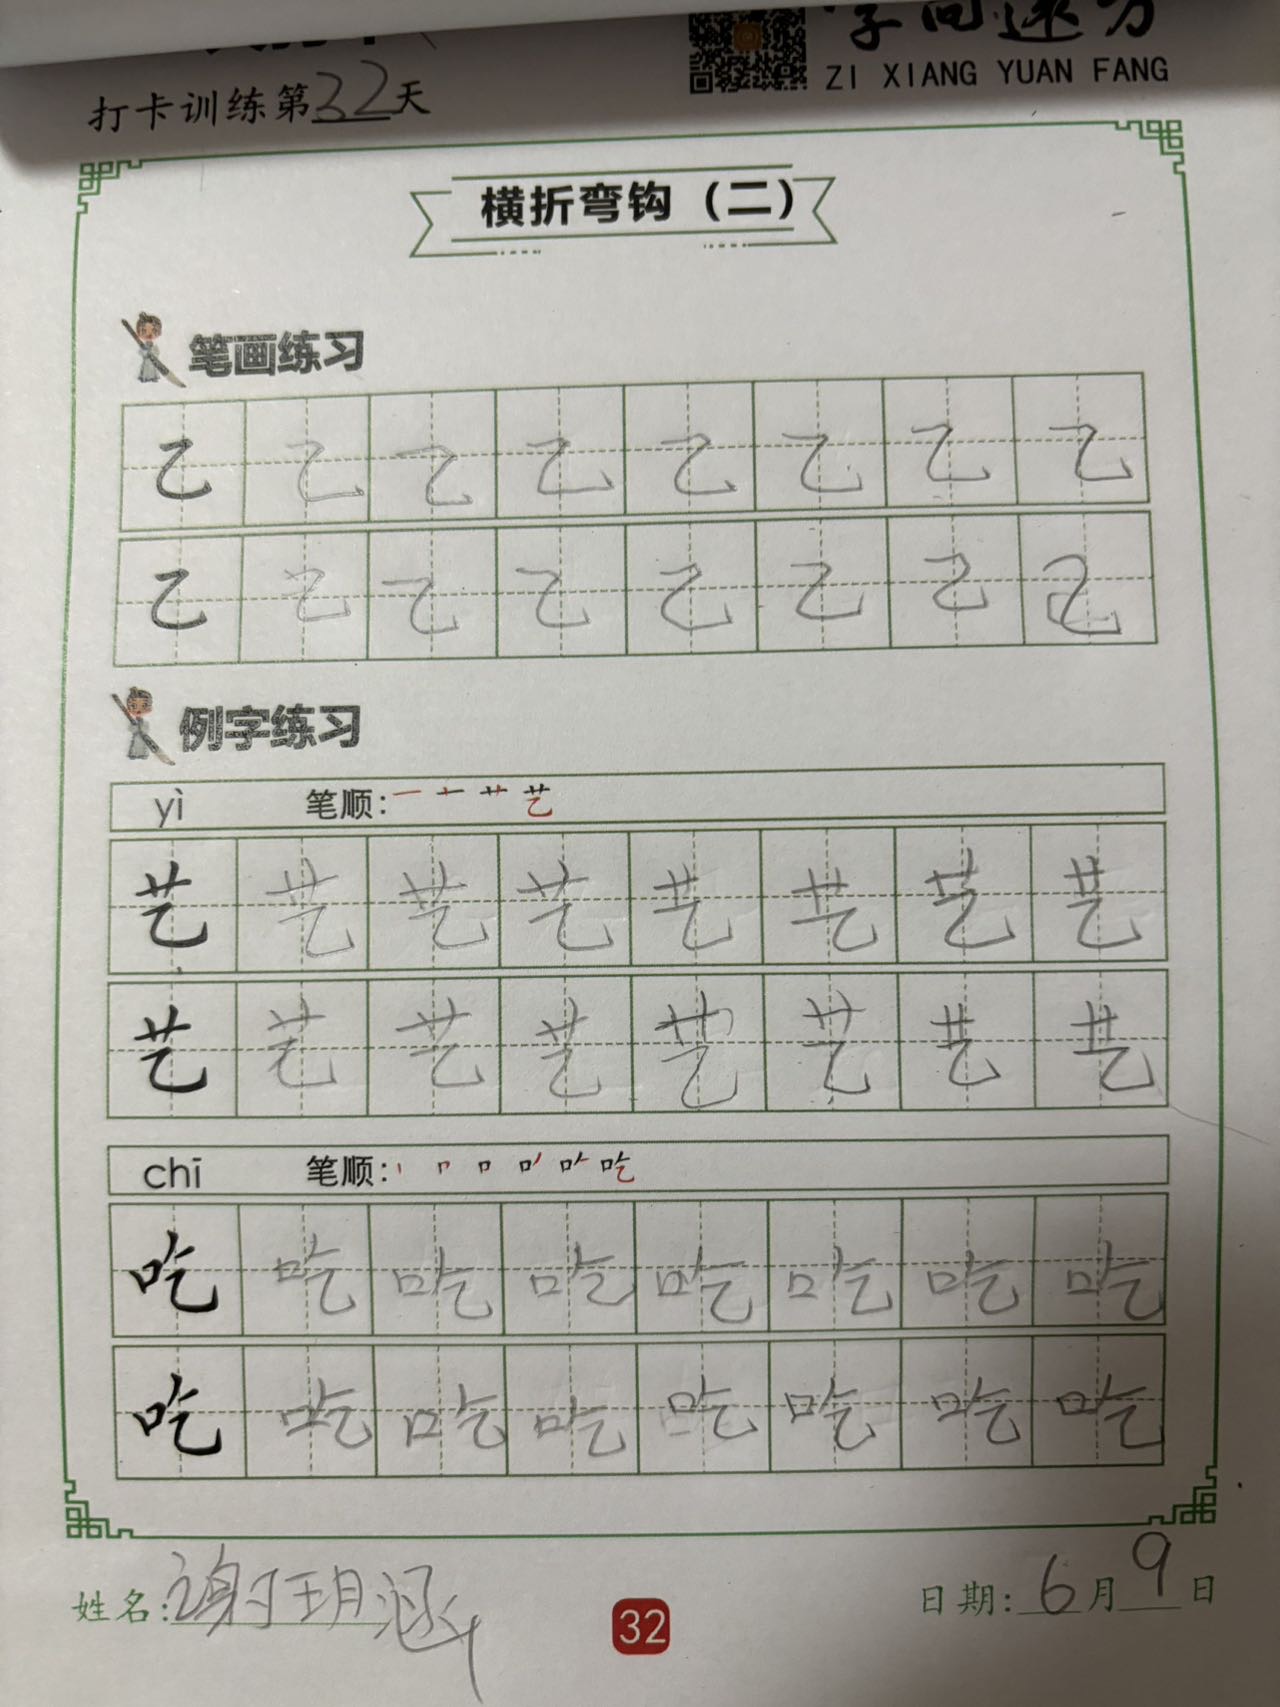 字向远方
ZI XIANG YUAN FANG
打卡训练第32天
横折弯钩（二）
笔画练习
乙 乙 乙 乙 乙 乙 乙 乙
乙 乙 乙 乙 乙 乙 乙 乙
例字练习
yì 笔顺: 一 十 艹 艺
艺 艺 艺 艺 艺 艺 艺 艺
艺 艺 艺 艺 艺 艺 艺 艺
chī 笔顺: 丨 𠃍 口 吃
吃 吃 吃 吃 吃 吃 吃 吃
吃 吃 吃 吃 吃 吃 吃 吃
姓名:谢玥涵
32
日期: 6月9日